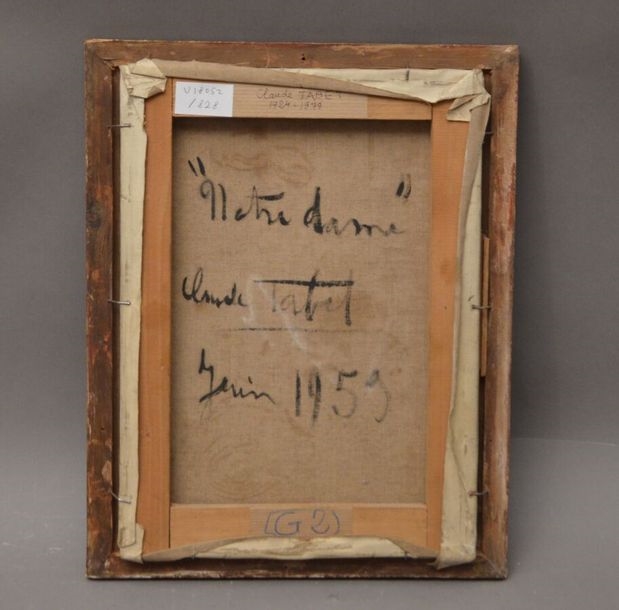 V18052
/828
Claude TABET
1924-1979
"Notre dame"
Claude Tabet
Juin 1959
(G2)